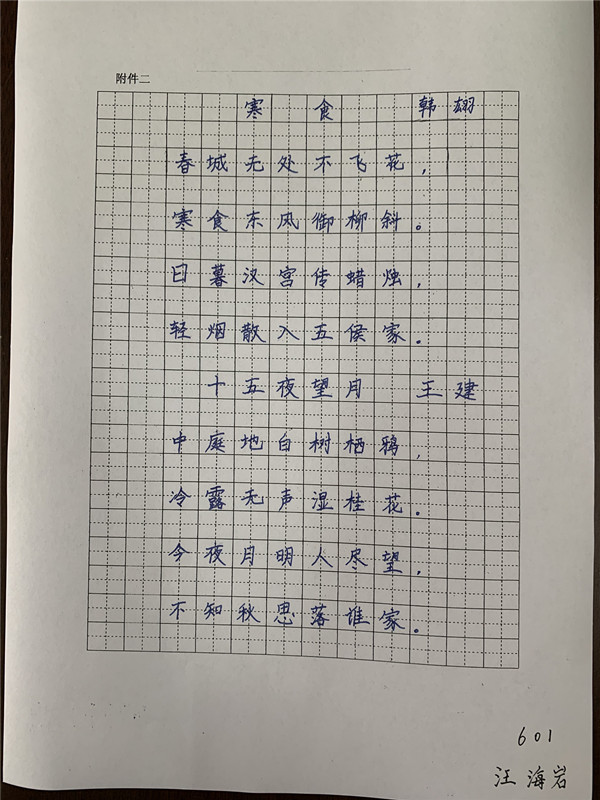 附件二
寒食 韩翃
春城无处不飞花，
寒食东风御柳斜。
日暮汉宫传蜡烛，
轻烟散入五侯家。
十五夜望月 王建
中庭地白树栖鸦，
冷露无声湿桂花。
今夜月明人尽望，
不知秋思落谁家。
601
汪海岩